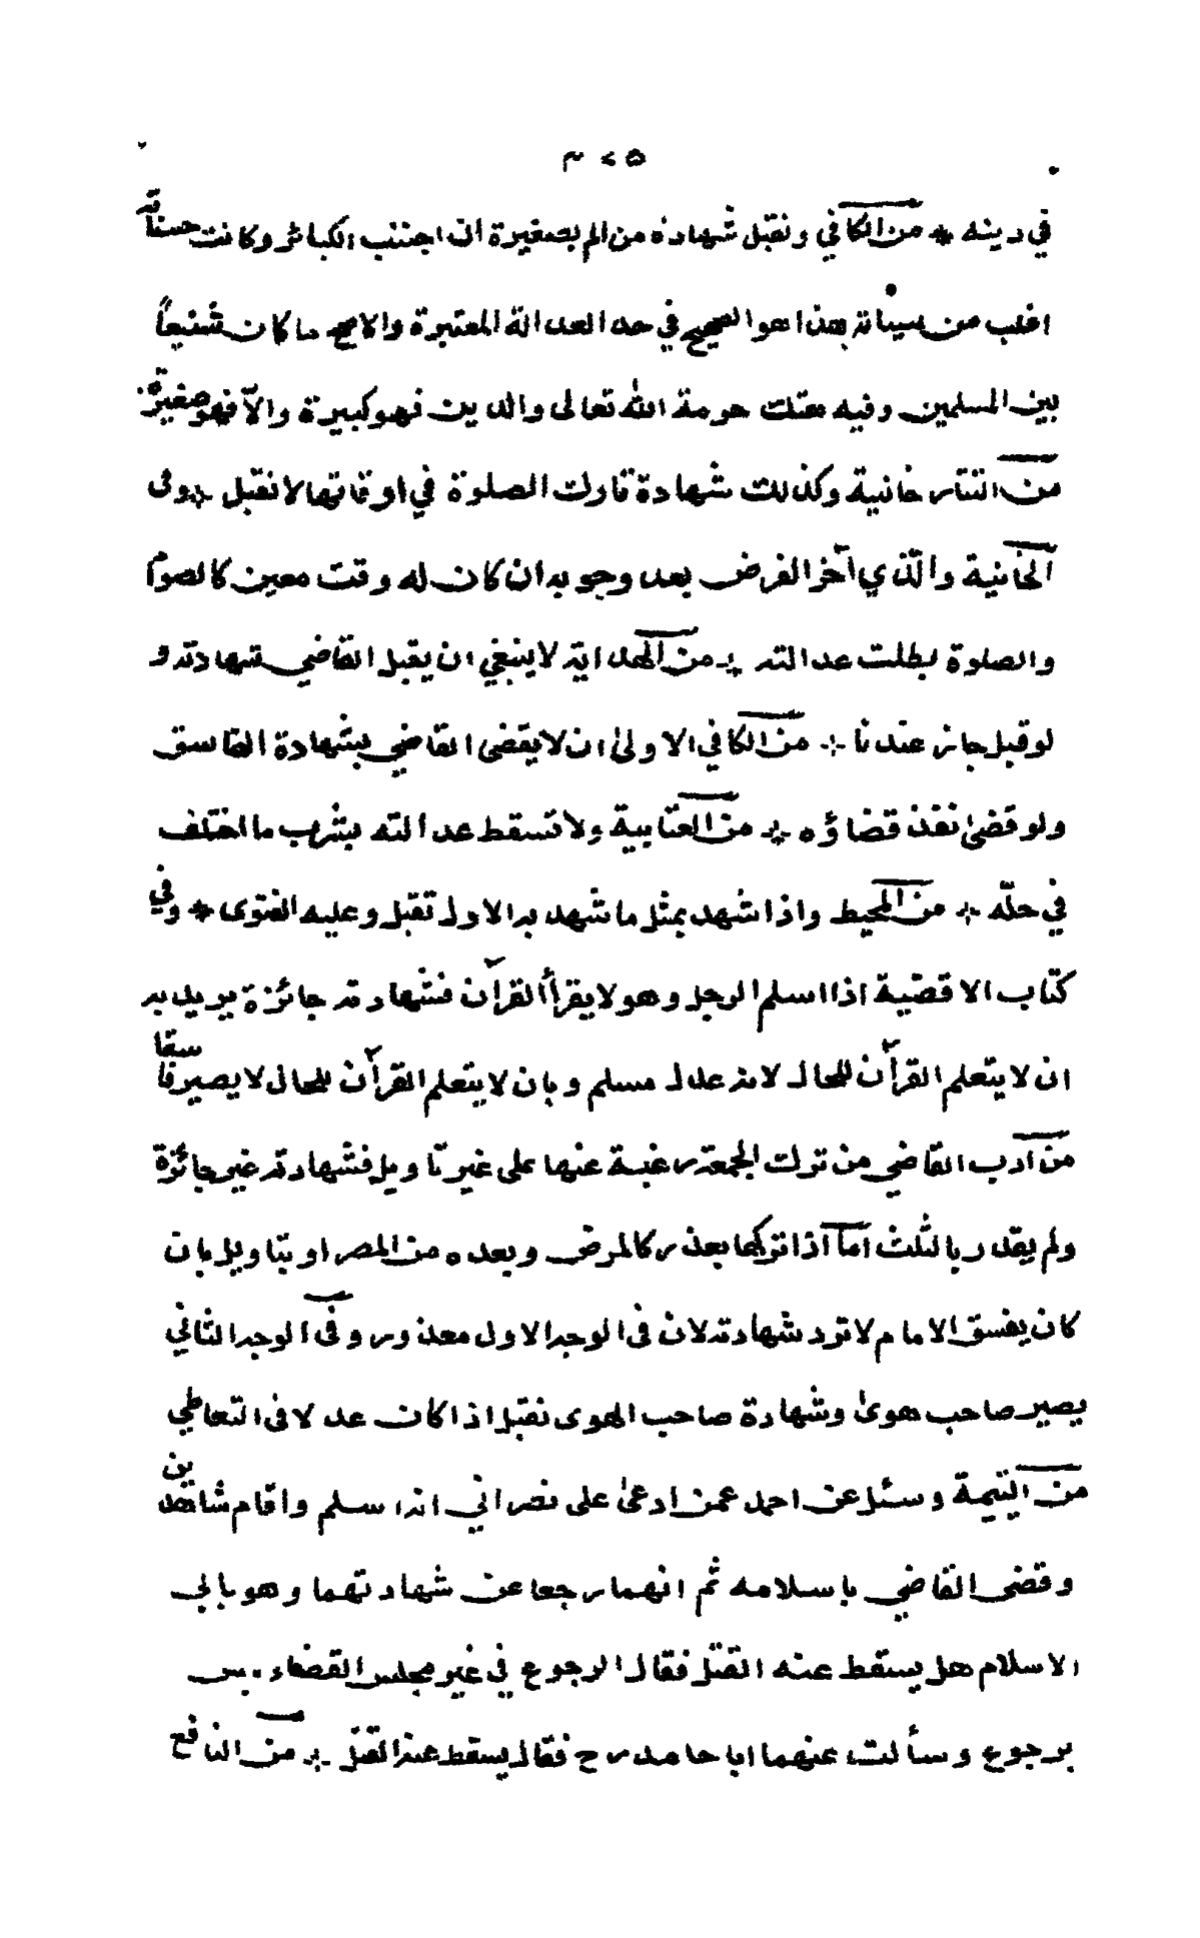 ٣٢٥
في دينه * من الكافي وتقبل شهادة من الم بصغيرة ان اجتنب الكبائر وكانت حسناته
اغلب من سيئاته هذا هو الصحيح في حد العدالة المعتبرة والاصح ما كان شنيعاً
بين المسلمين وفيه هتك حرمة الله تعالى والدين فهو كبيرة والّا فهو صغيرة
من التتارخانية وكذلك شهادة تارك الصلوة في اوقاتها لا تقبل * وفي
الخانية والّذي آخر الفرض بعد وجوبه ان كان له وقت معين كالصوم
والصلوة بطلت عدالته * من الهداية لا ينبغي ان يقبل القاضي شهادته و
لو قبل جاز عندنا * من الكافي الاولىٰ ان لا يقضى القاضي بشهادة الفاسق
ولو قضىٰ نفذ قضاؤه * من العتابية ولا تسقط عدالته بشرب ما اختلف
في حلّه * من المحيط واذا شهد بمثل ما شهد به الاول تقبل وعليه الفتوى * وفي
كتاب الاقضية اذا اسلم الرجل وهو لا يقرأ القرآن فشهادته جائزة يريد به
ان لا يتعلم القرآن للحال لانه عدل مسلم وبان لا يتعلم القرآن للحال لا يصير فاسقا
من ادب القاضي من ترك الجمعة رغبة عنها على غير تاويل فشهادته غير جائزة
ولم يقدر بالثلث اما اذا تركها بعذر كالمرض وبعده من المصر او بتاويل بان
كان يفسق الامام لا ترد شهادته لان فى الوجه الاول معذور وفى الوجه الثاني
يصير صاحب هوىٰ وشهادة صاحب الهوى تقبل اذا كان عدلا فى التعاطي
من اليتيمة وسئل عن احمد عمن ادعىٰ على نصراني انه اسلم واقام شاهدين
وقضى القاضي باسلامه ثم انهما رجعا عن شهادتهما وهو يابى
الاسلام هل يسقط عنه القتل فقال الرجوع في غير مجلس القضاء ليس
برجوع وسألت عنهما ابا حامد رح فقال يسقط عنه القتل * من النافع